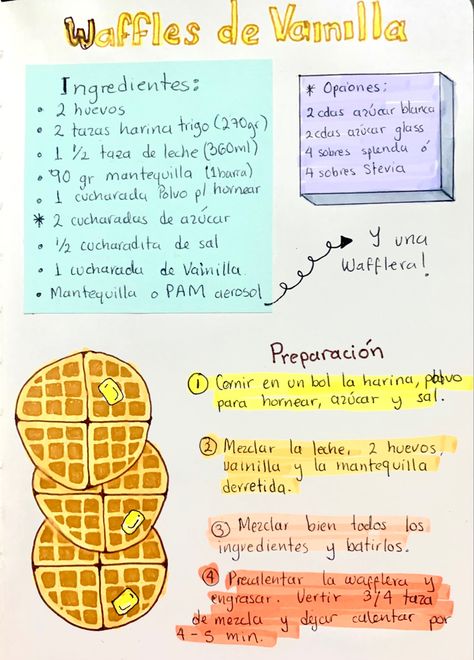 Waffles de Vainilla
Ingredientes:
• 2 huevos
• 2 tazas harina trigo (270gr)
• 1 1/2 taza de leche (360ml)
• 90 gr mantequilla (1barra)
• 1 cucharada Polvo p/ hornear
* 2 cucharadas de azúcar
• 1/2 cucharadita de sal
• 1 cucharada de Vainilla
• Mantequilla o PAM aerosol
* Opciones:
2 cdas azúcar blanca
2 cdas azúcar glass
4 sobres splenda ó
4 sobres Stevia
Y una
Wafflera!
Preparación
1 Cernir en un bol la harina, polvo
para hornear, azúcar y sal.
2 Mezclar la leche, 2 huevos,
vainilla y la mantequilla
derretida.
3 Mezclar bien todos los
ingredientes y batirlos.
4 Precalentar la wafflera y
engrasar. Vertir 3/4 taza
de mezcla y dejar calentar por
4-5 min.